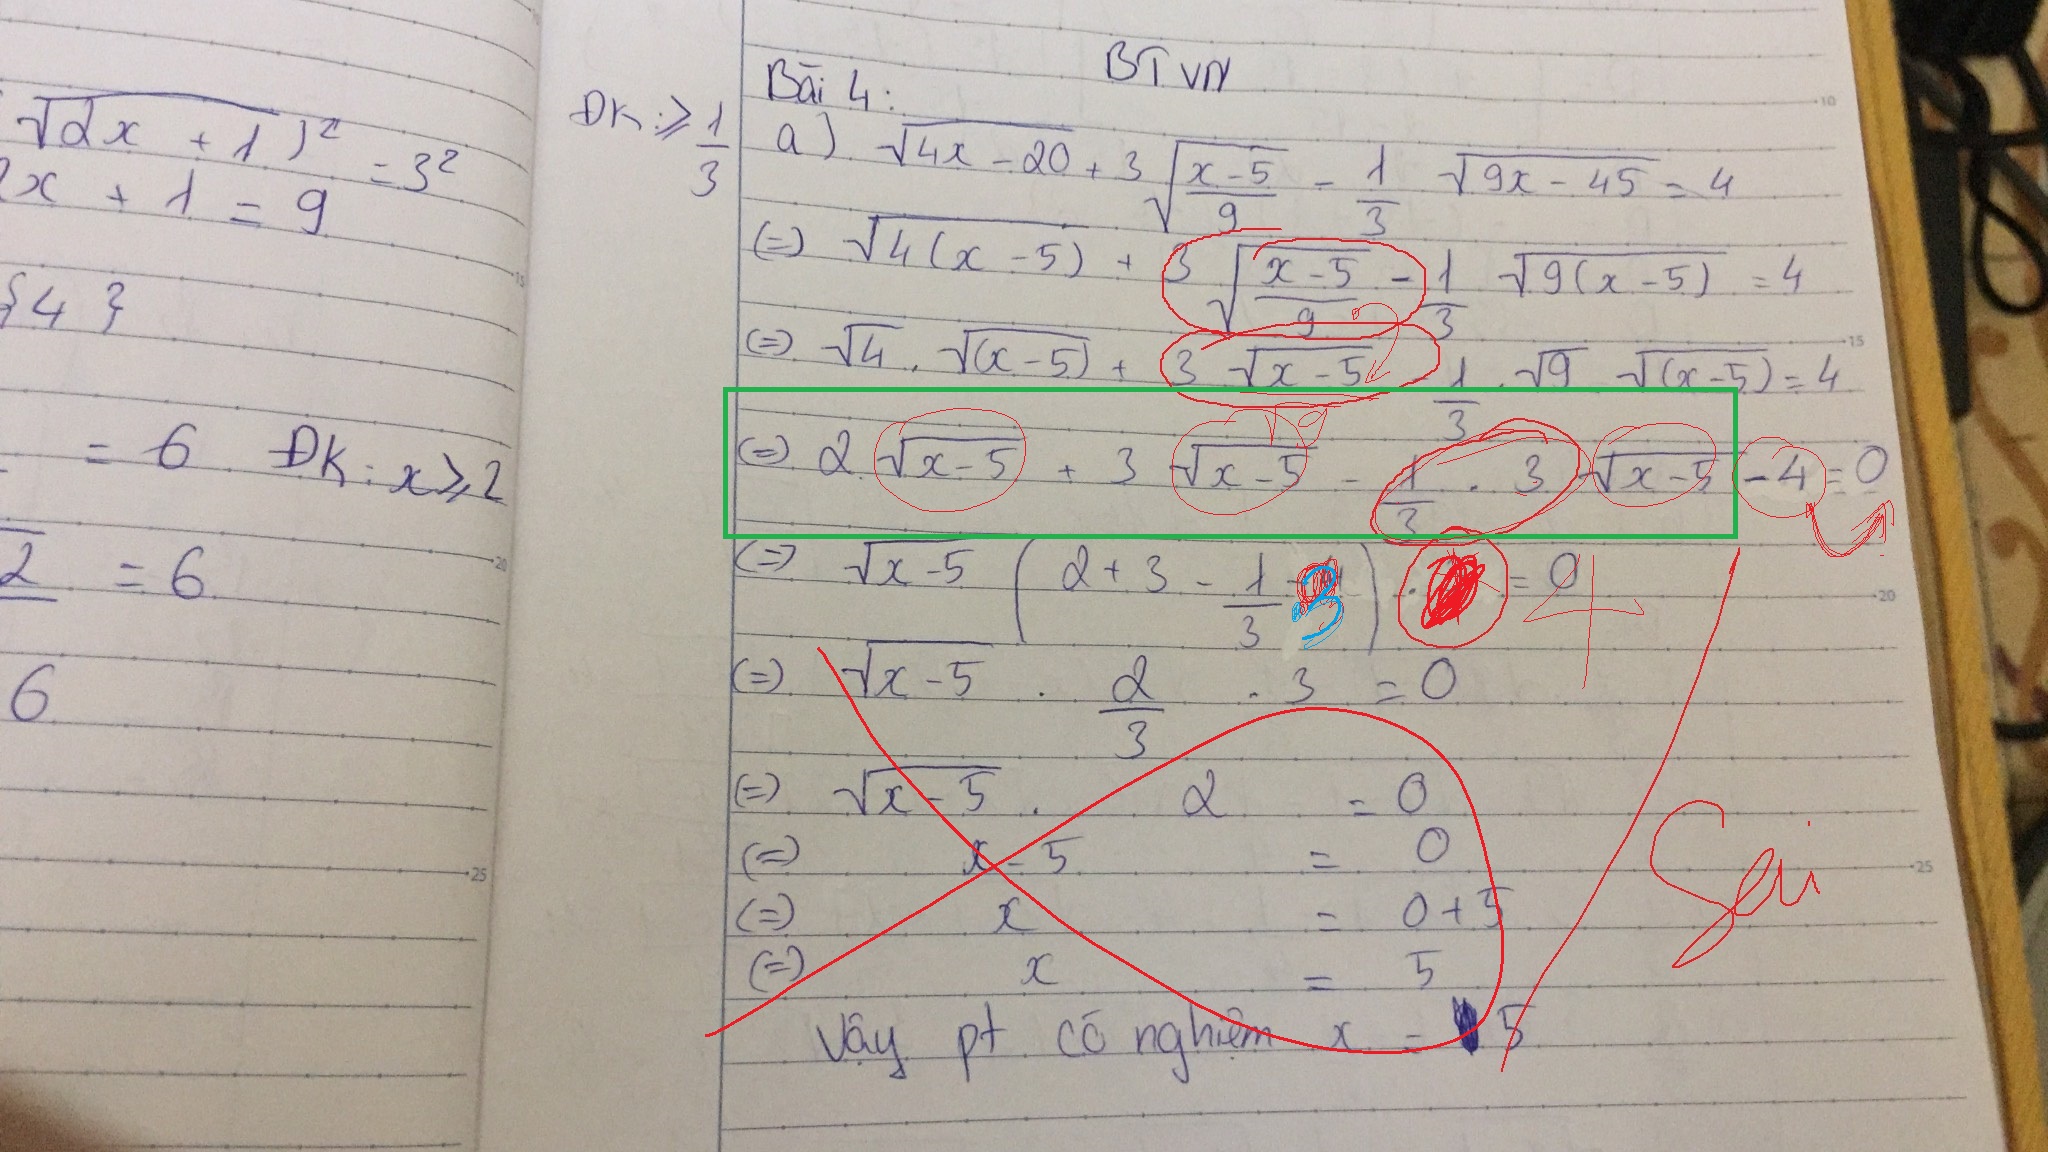 √(2x + 1)² = 3²
2x + 1 = 9
{4}
= 6 ĐK: x ⩾ 2
2 = 6
6
BTVN
ĐK: ⩾ 1/3
Bài 4:
a) √(4x - 20) + 3 √((x - 5)/9) - 1/3 √(9x - 45) = 4
(=) √(4(x - 5)) + 3 √((x - 5)/9) - 1/3 √(9(x - 5)) = 4
(=) √4 . √(x - 5) + 3 √(x - 5) - 1/3 . √9 √(x - 5) = 4
√9
(=) 2 √(x - 5) + 3 √(x - 5) - 1/3 . 3 √(x - 5) - 4 = 0
(=) √(x - 5) (2 + 3 - 1/3 3) . = 0 4
(=) √(x - 5) . 2/3 . 3 = 0
(=) √(x - 5) . 2 = 0
(=) x - 5 = 0
(=) x = 0 + 5
(=) x = 5
Vậy pt có nghiệm x = 5
Sai
10
15
20
25
15
20
25